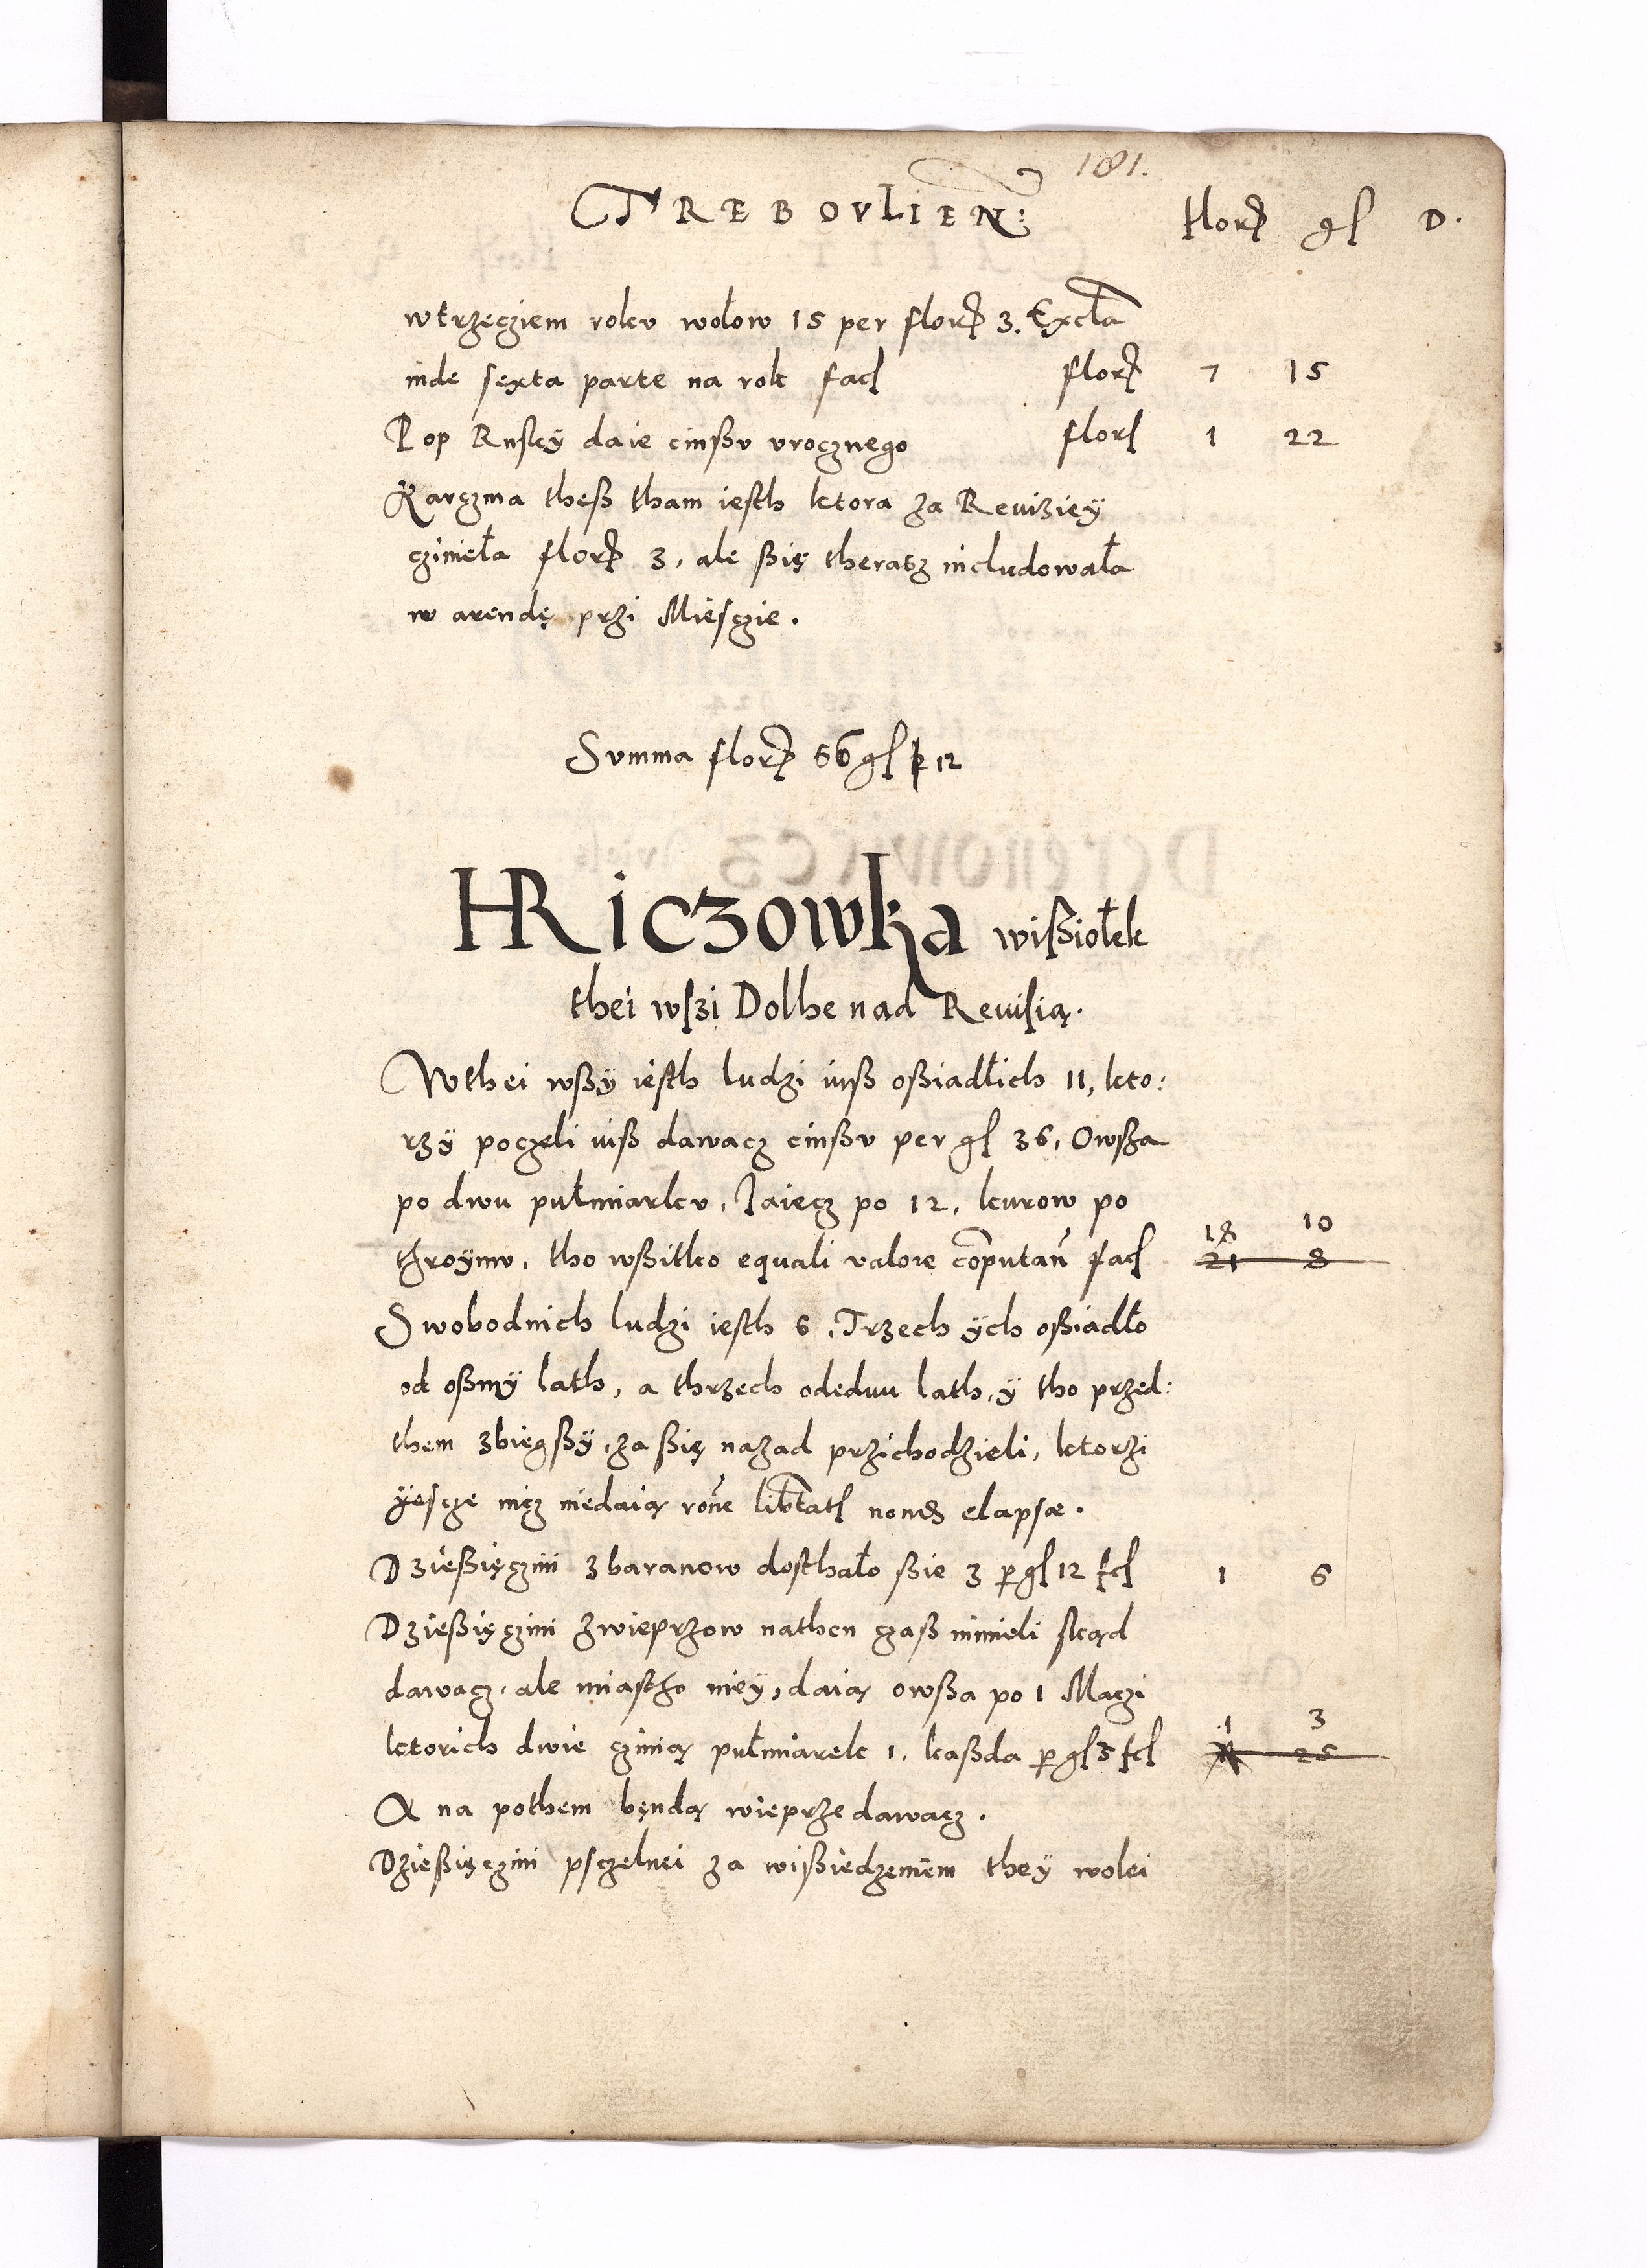 181.
TREBOVLIEN: flor gl D.
wtrzecziem rokv wołow 15 per flor 3. Excła
inde sexta parte na rok facl flor 7 15
Pop Ruskÿ daie cinßv vrocznego flor 1 22
Karczma theß tham iesth ktora za Reviziеÿ
cziniеła flor 3, ale ßię therasz includowała
w arendę przi Miesczie.
Svmma flor 56 gl p 12
HRiczowka wißiołek
thei wszi Dolhe nad Revisią.
Wthei wßÿ iesth ludzi iuß oßiadłich 11, kto:
rzÿ poczeli iuß dawacz cinßv per gl 36, Owsßa
po dwu pułmiarkv, Jaiecz po 12, kurow po
18 10
throÿnv, tho wßitko equali valore computan facl 21 8
Swobodnich ludzi iesth 6. Trzech ÿch oßiadło
od oßmÿ lath, a thrzech odeduu lath, ÿ tho przed:
them zbiegßÿ, za ßię nazad przichodzieli, ktorzi
ÿescze nicz niedaią rone libtatl nonds elapsæ.
Dzießięczini zbaranow dosthało ßie 3 p gl 12 fcl 1 6
Dzießięczini zwieprzow nathen czaß nimieli skąd
dawacz, ale miastho nieÿ, daią owßa po 1 Maczi
1 3
ktorich dwie czinią pułmiarek 1. kaßda p gl 5 fcl 25
A na pothem bęndą wieprze dawacz.
Dzießięczini psczelnei za wißiedzeniem theÿ wolei